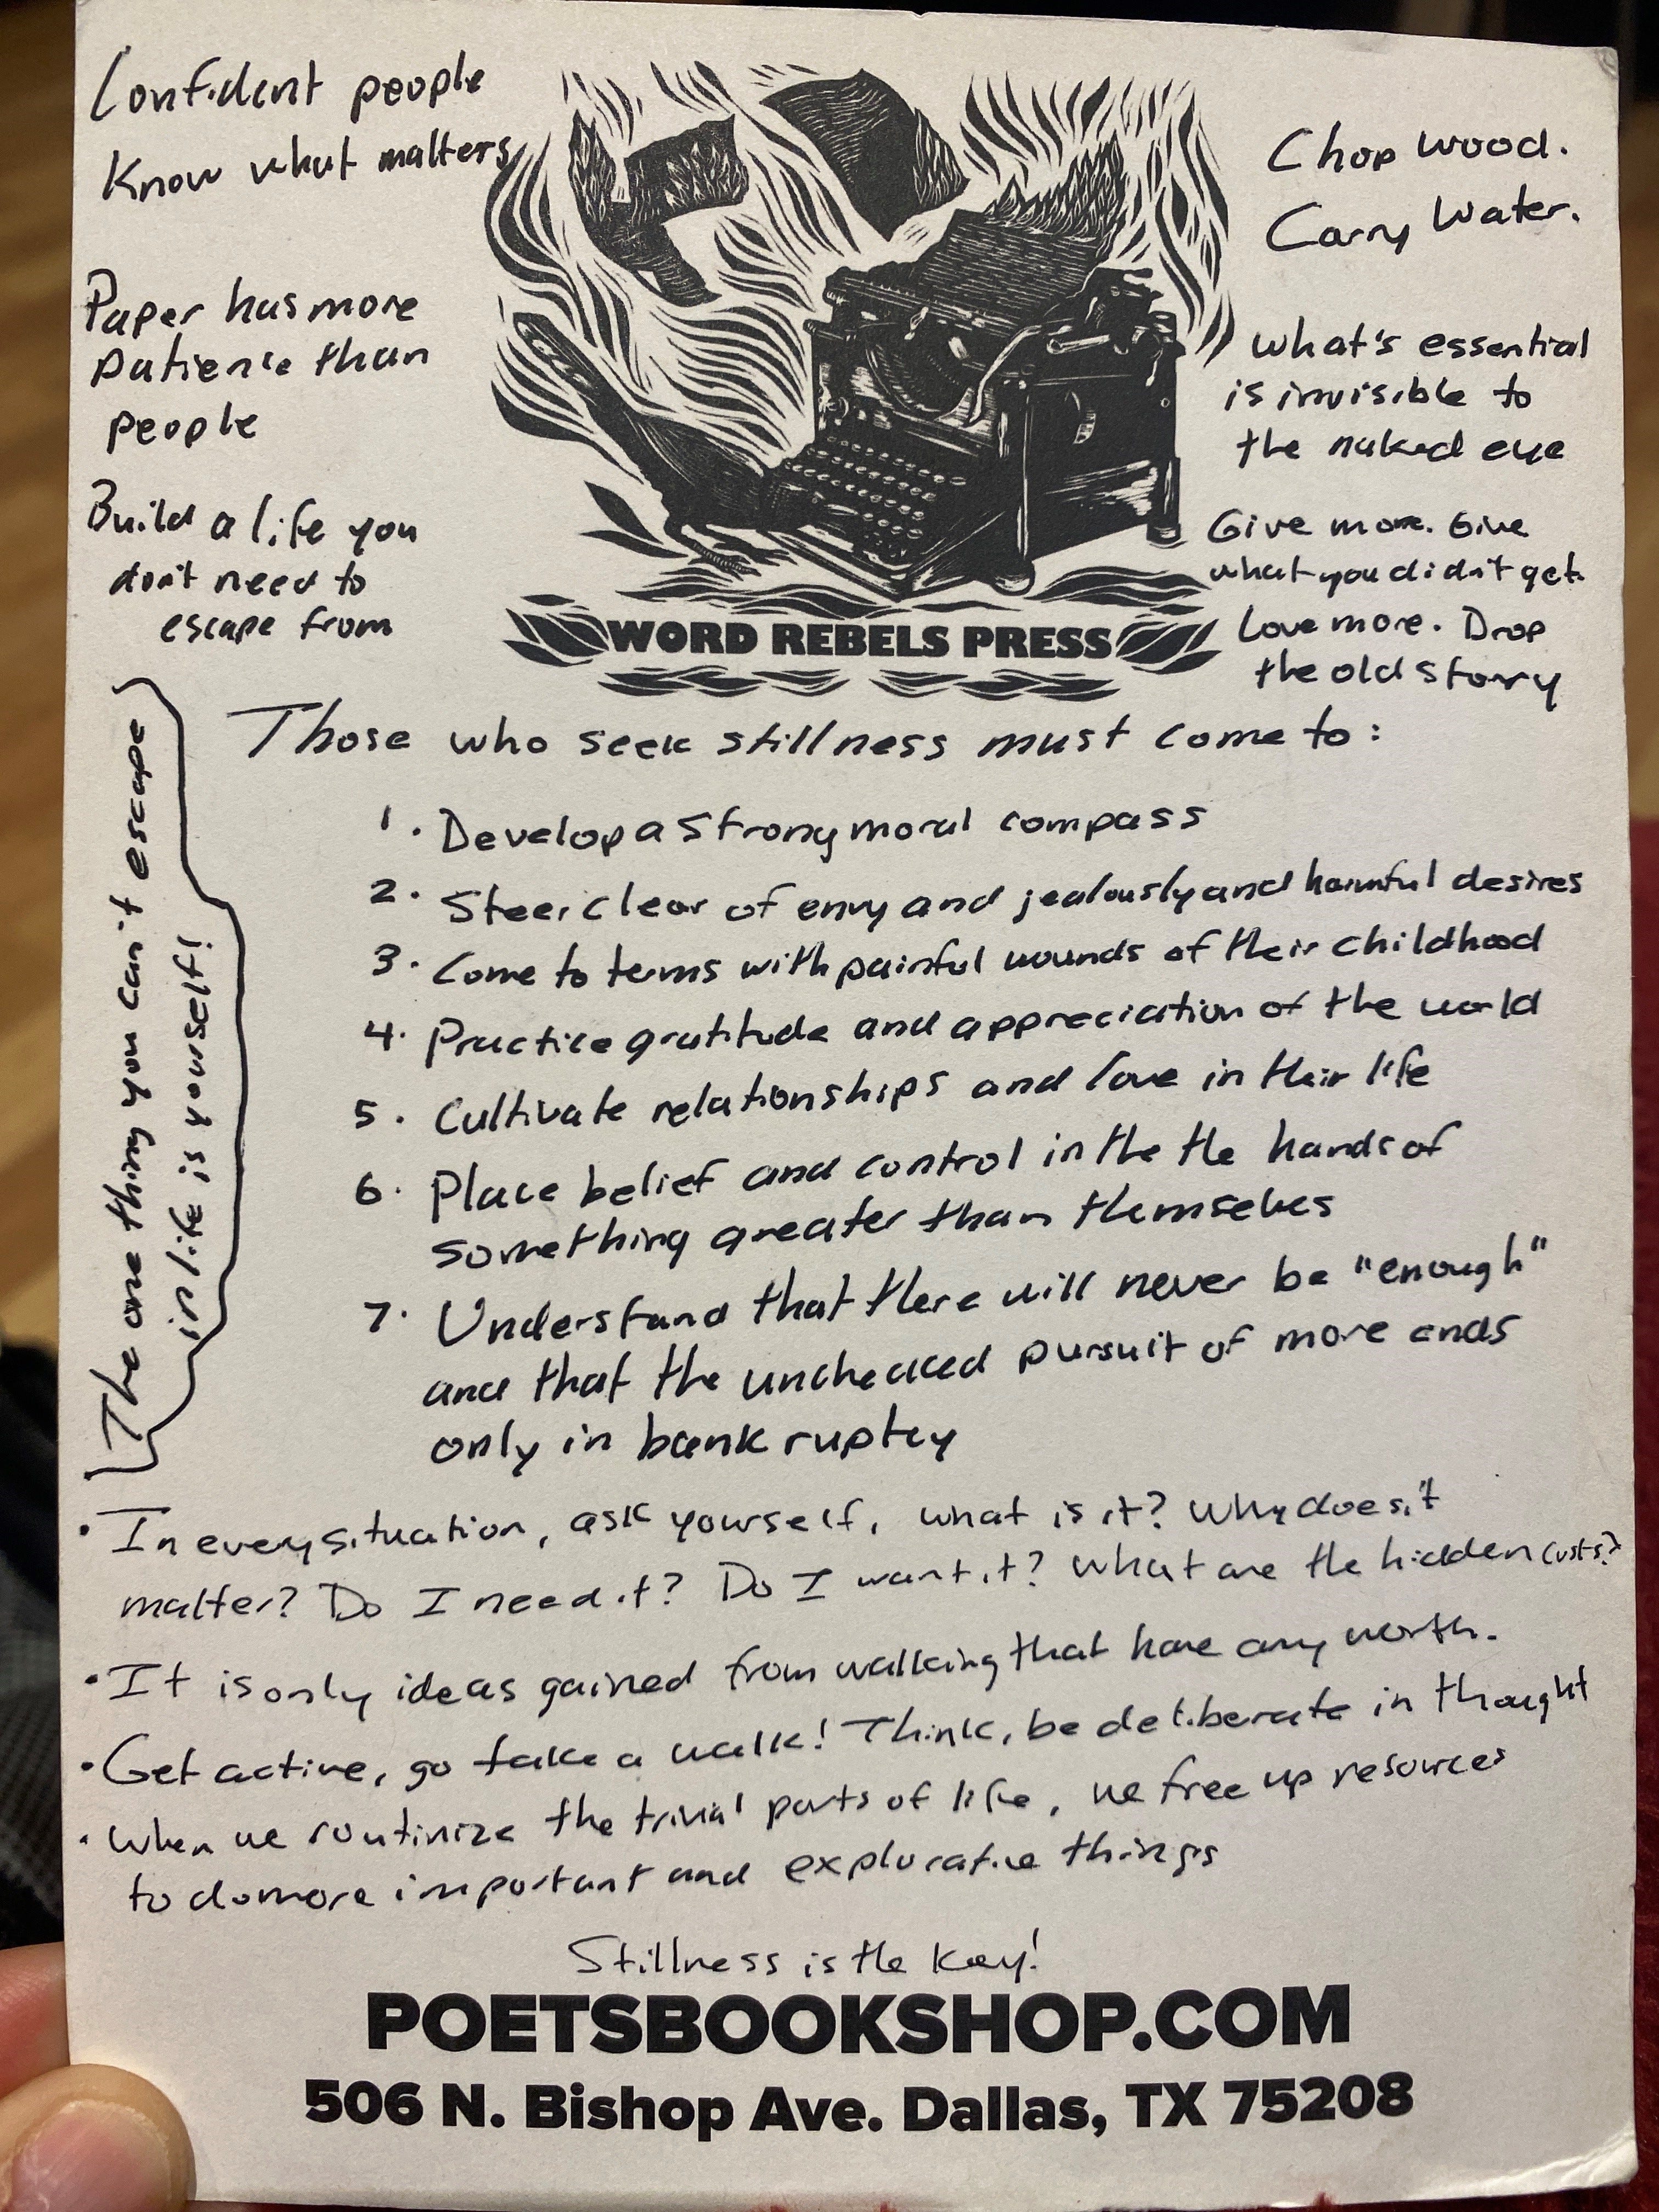 Confident people
Know what matters
Paper has more
patience than
people
Build a life you
don't need to
escape from
Chop wood.
Carry Water.
What's essential
is invisible to
the naked eye
Give more. Give
what you didn't get.
Love more. Drop
the old story
WORD REBELS PRESS
The one thing you can't escape
in life is yourself!
Those who seek stillness must come to:
1. Develop a strong moral compass
2. Steer clear of envy and jealously and harmful desires
3. Come to terms with painful wounds of their childhood
4. Practice gratitude and appreciation of the world
5. Cultivate relationships and love in their life
6. Place belief and control in the the hands of
something greater than themselves
7. Understand that there will never be "enough"
and that the unchecked pursuit of more ends
only in bankruptcy
• In every situation, ask yourself, what is it? Why does it
matter? Do I need it? Do I want it? What are the hidden costs?
• It is only ideas gained from walking that have any worth.
• Get active, go take a walk! Think, be deliberate in thought
• When we routinize the trivial parts of life, we free up resources
to do more important and explorative things
Stillness is the Key!
POETSBOOKSHOP.COM
506 N. Bishop Ave. Dallas, TX 75208